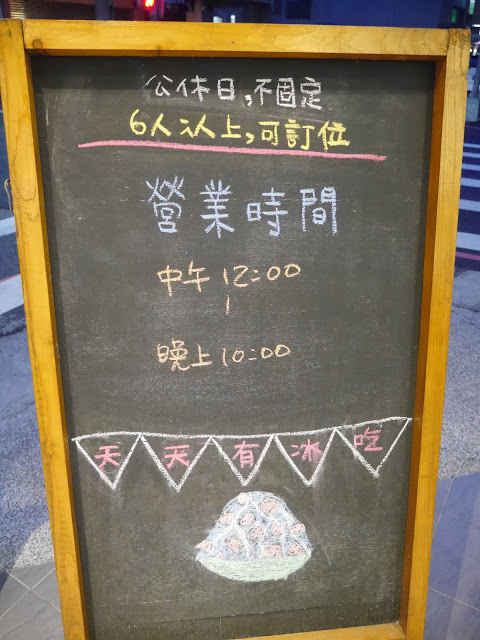 公休日,不固定
6人以上,可訂位
營業時間
中午 12:00
|
晚上 10:00
天天有冰吃